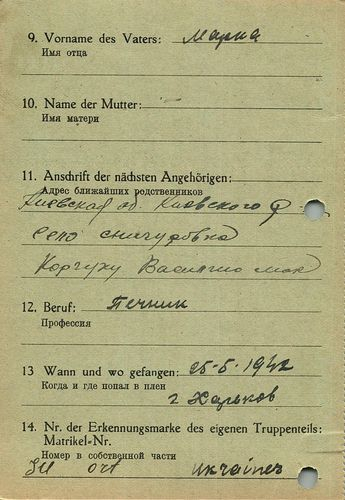 9. Vorname des Vaters: Марка
Имя отца
10. Name der Mutter:
Имя матери
11. Anschrift der nächsten Angehörigen:
Адрес ближайших родственников
Киевская об. Киевского р
Село
Корчуху Василию
12. Beruf: Печник
Профессия
13 Wann und wo gefangen: 25-5-1942
Когда и где попал в плен
г Харьков
14. Nr. der Erkennungsmarke des eigenen Truppenteils:
Matrikel-Nr.
Номер в собственной части
ort Ukrainer